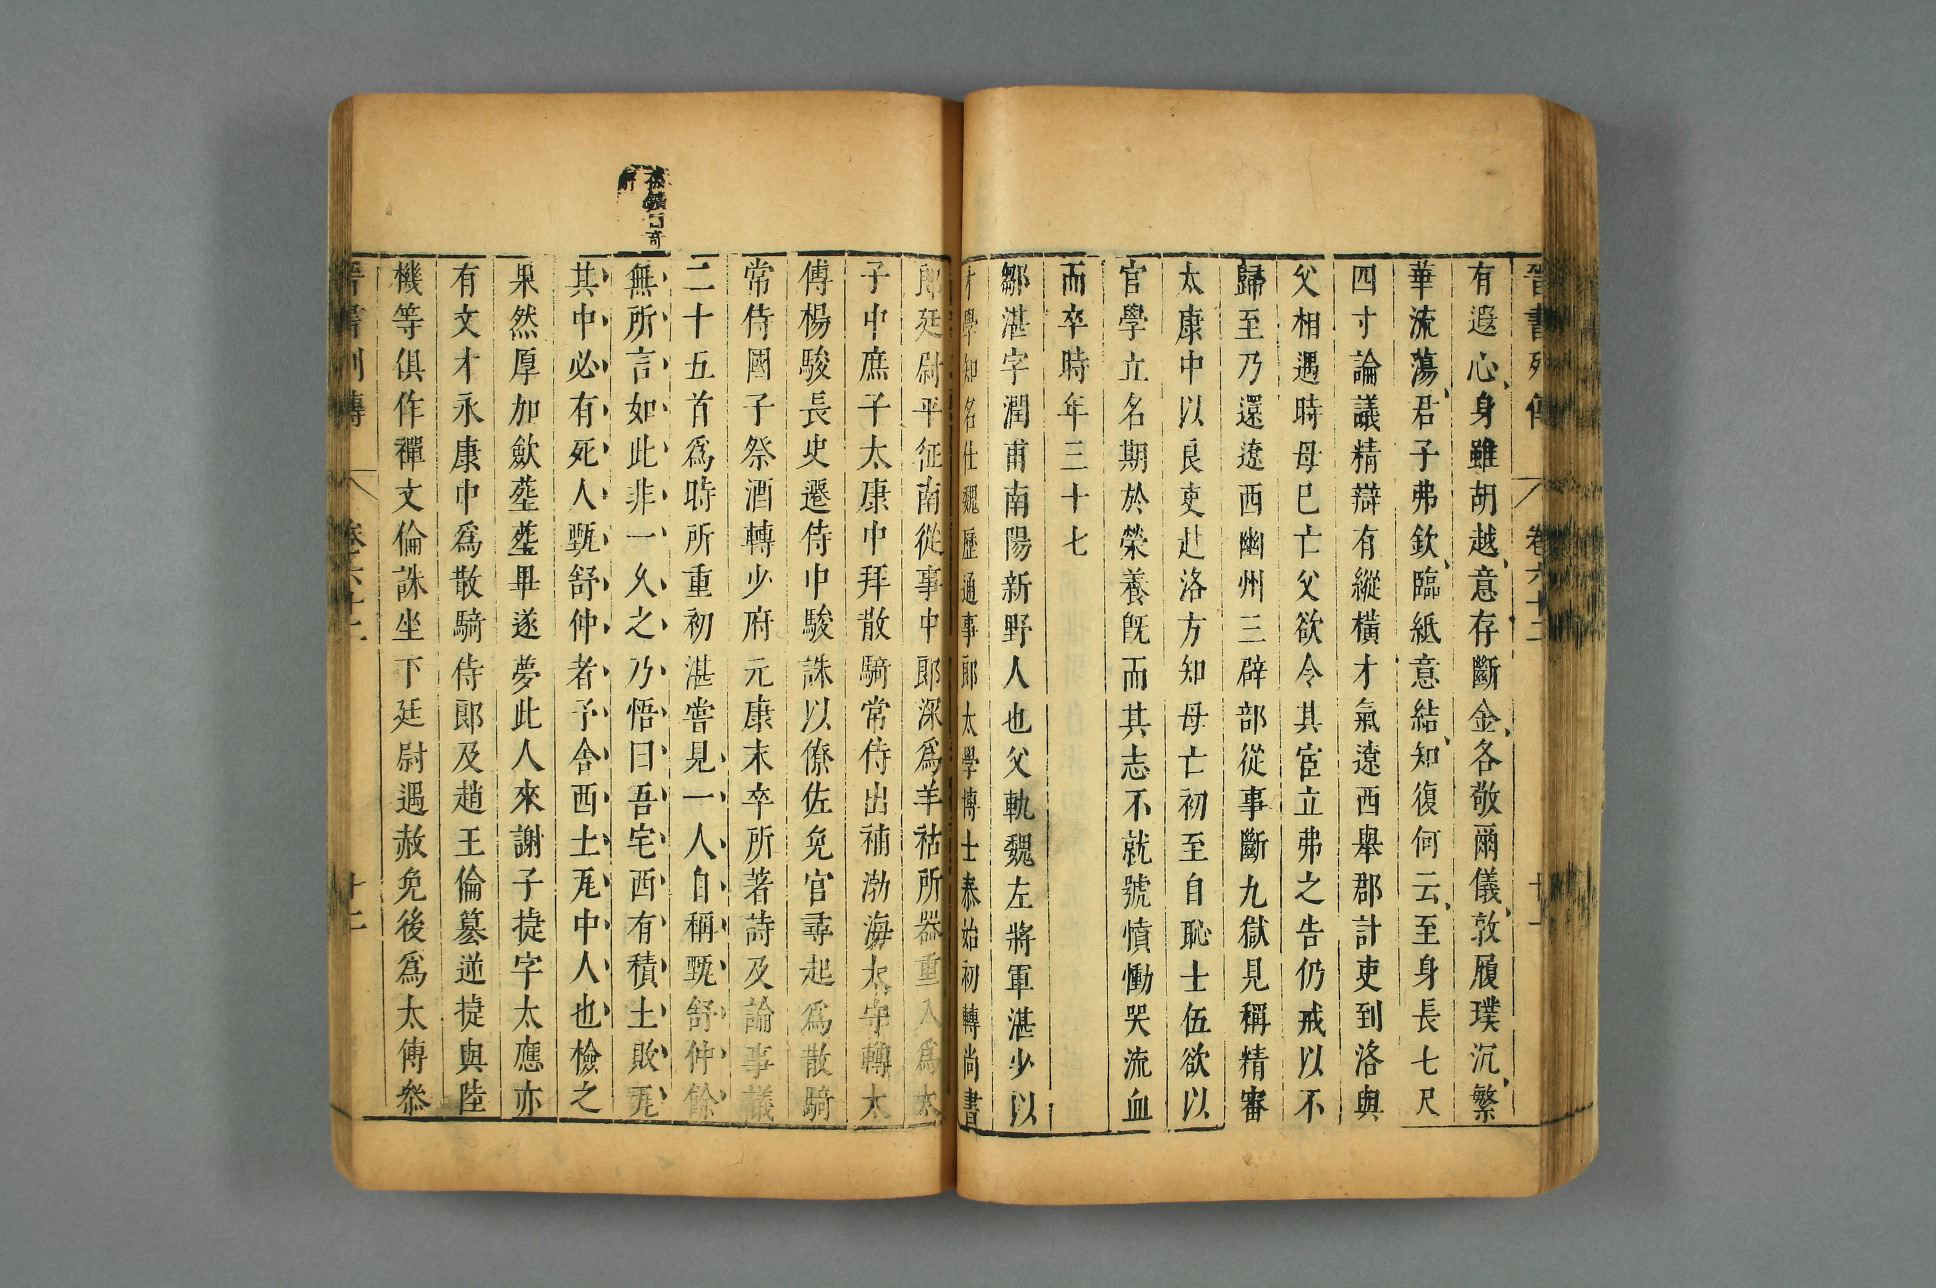 晉書列傳 卷六十二 十一
有遐心身雖胡越意存斷金各敬爾儀敦履璞沉繁
華流蕩君子弗欽臨紙意結知復何云至身長七尺
四寸論議精辯有縱橫才氣遼西舉郡計吏到洛與
父相遇時母已亡父欲令其宦立弗之告仍戒以不
歸至乃還遼西幽州三辟部從事斷九獄見稱精審
太康中以良吏赴洛方知母亡初至自恥士伍欲以
官學立名期於榮養旣而其志不就號憤慟哭流血
而卒時年三十七
鄒湛字潤甫南陽新野人也父軌魏左將軍湛少以
才學知名仕魏歷通事郎太學博士泰始初轉尚書
郎廷尉平征南從事中郎深爲羊祜所器重入爲太
子中庶子太康中拜散騎常侍出補渤海太守轉太
傅楊駿長史遷侍中駿誅以僚佐免官尋起爲散騎
常侍國子祭酒轉少府元康末卒所著詩及論事議
二十五首爲時所重初湛嘗見一人自稱甄舒仲餘
無所言如此非一久之乃悟曰吾宅西有積土敗瓦
其中必有死人甄舒仲者予舍西土瓦中人也檢之
果然厚加歛葬葬畢遂夢此人來謝子揵字太應亦
有文才永康中爲散騎侍郎及趙王倫簒逆揵與陸
機等俱作禪文倫誅坐下廷尉遇赦免後爲太傅叅
晉書列傳 卷六十二 十二